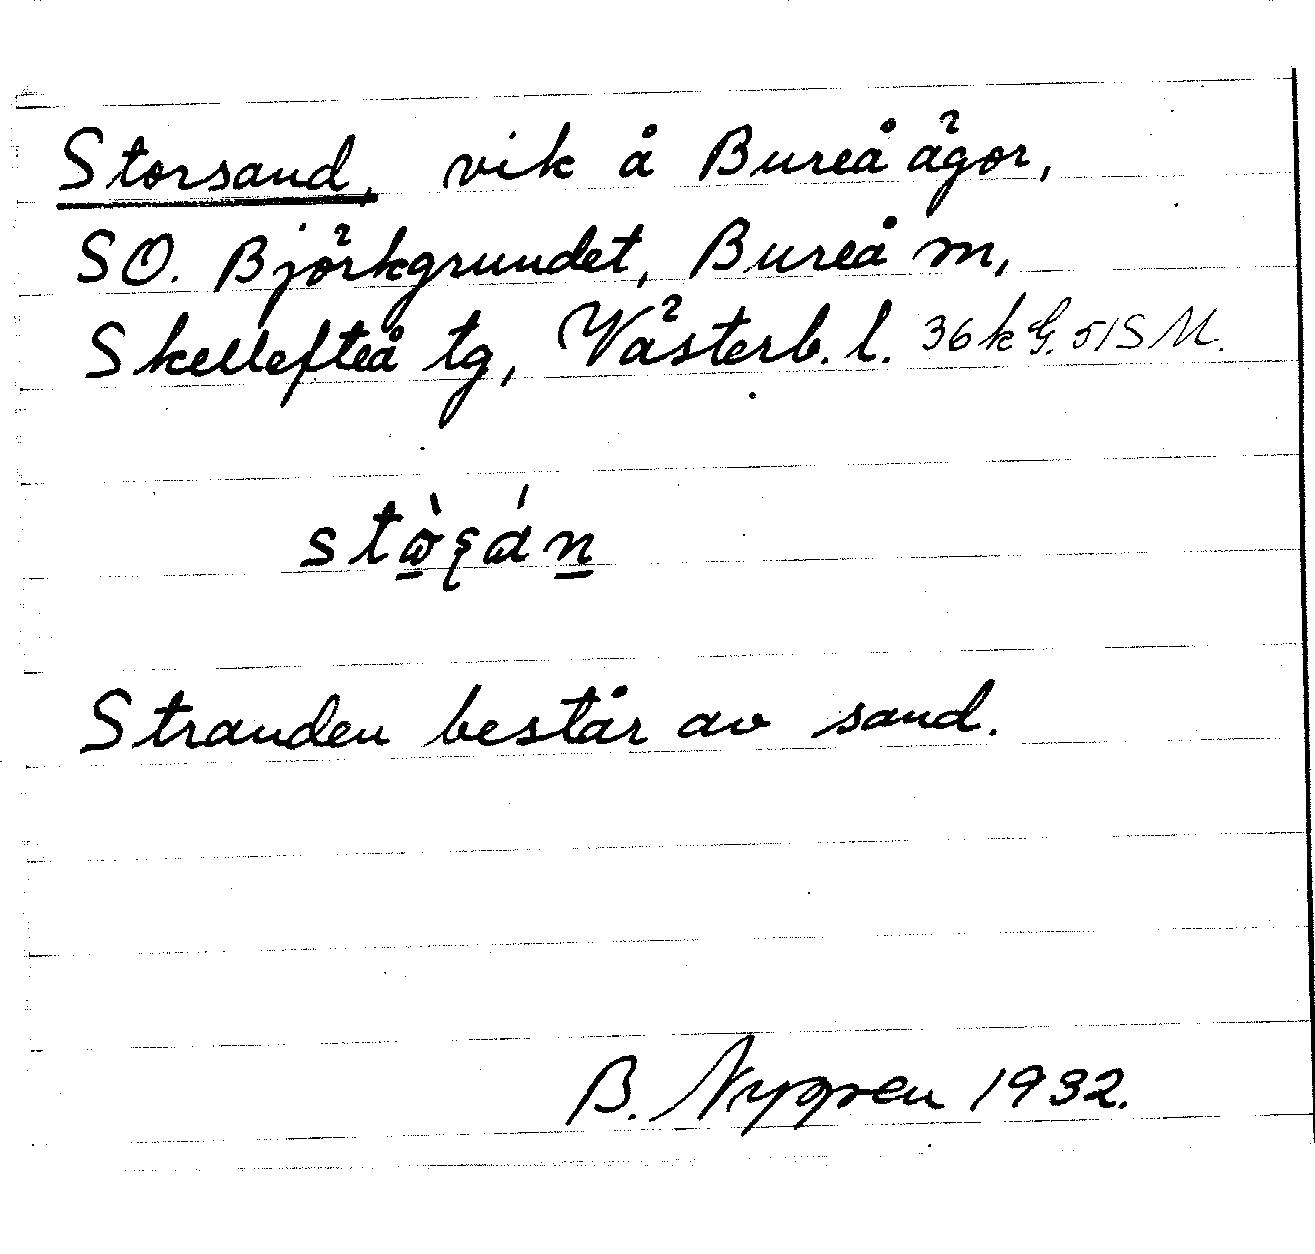 Storsand, vik å Bureå ägor,
SO. Björkgrundet, Bureå m,
Skellefteå tg, Västerb. l. 36 k G. 51 S M.
stɷ̠̀ʂán̠
Stranden består av sand.
B. Nygren 1932.